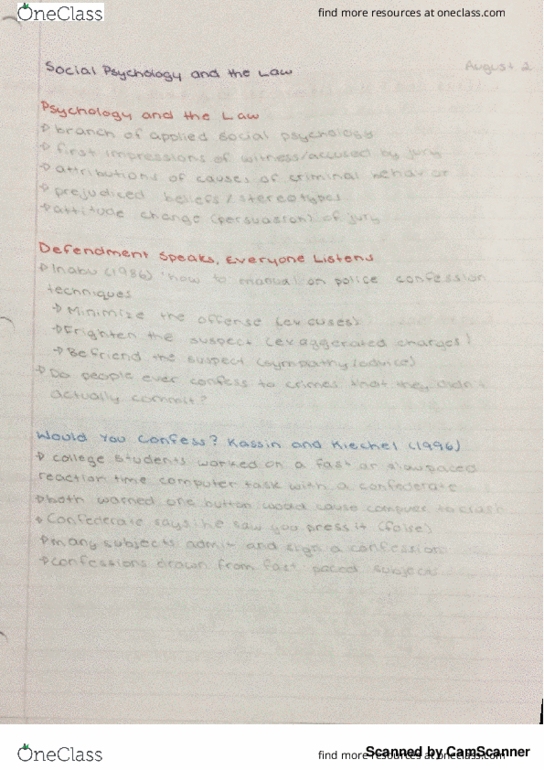 OneClass
find more resources at oneclass.com
Social Psychology and the Law
August 2
Psychology and the Law
→ branch of applied social psychology
→ first impressions of witness/accused by jury
→ attributions of causes of criminal behavior
→ prejudiced beliefs/stereotypes
→ attitude change (persuasion) of jury
Defendment Speaks, Everyone Listens
→ Inabu (1986) "how to manual" on police confession
techniques
→ Minimize the offense (excuses)
→ Frighten the suspect (exaggerated charges)
→ Befriend the suspect (sympathy/advice)
→ Do people ever confess to crimes that they didn't
actually commit?
Would You Confess? Kassin and Kiechel (1996)
→ college students worked on a fast or slow paced
reaction time computer task with a confederate
→ both warned one button would cause computer to crash
→ Confederate says he saw you press it (false)
→ many subjects admit and sign a confession
→ confessions drawn from fast paced subjects
OneClass
find more resources at oneclass.com
Scanned by CamScanner